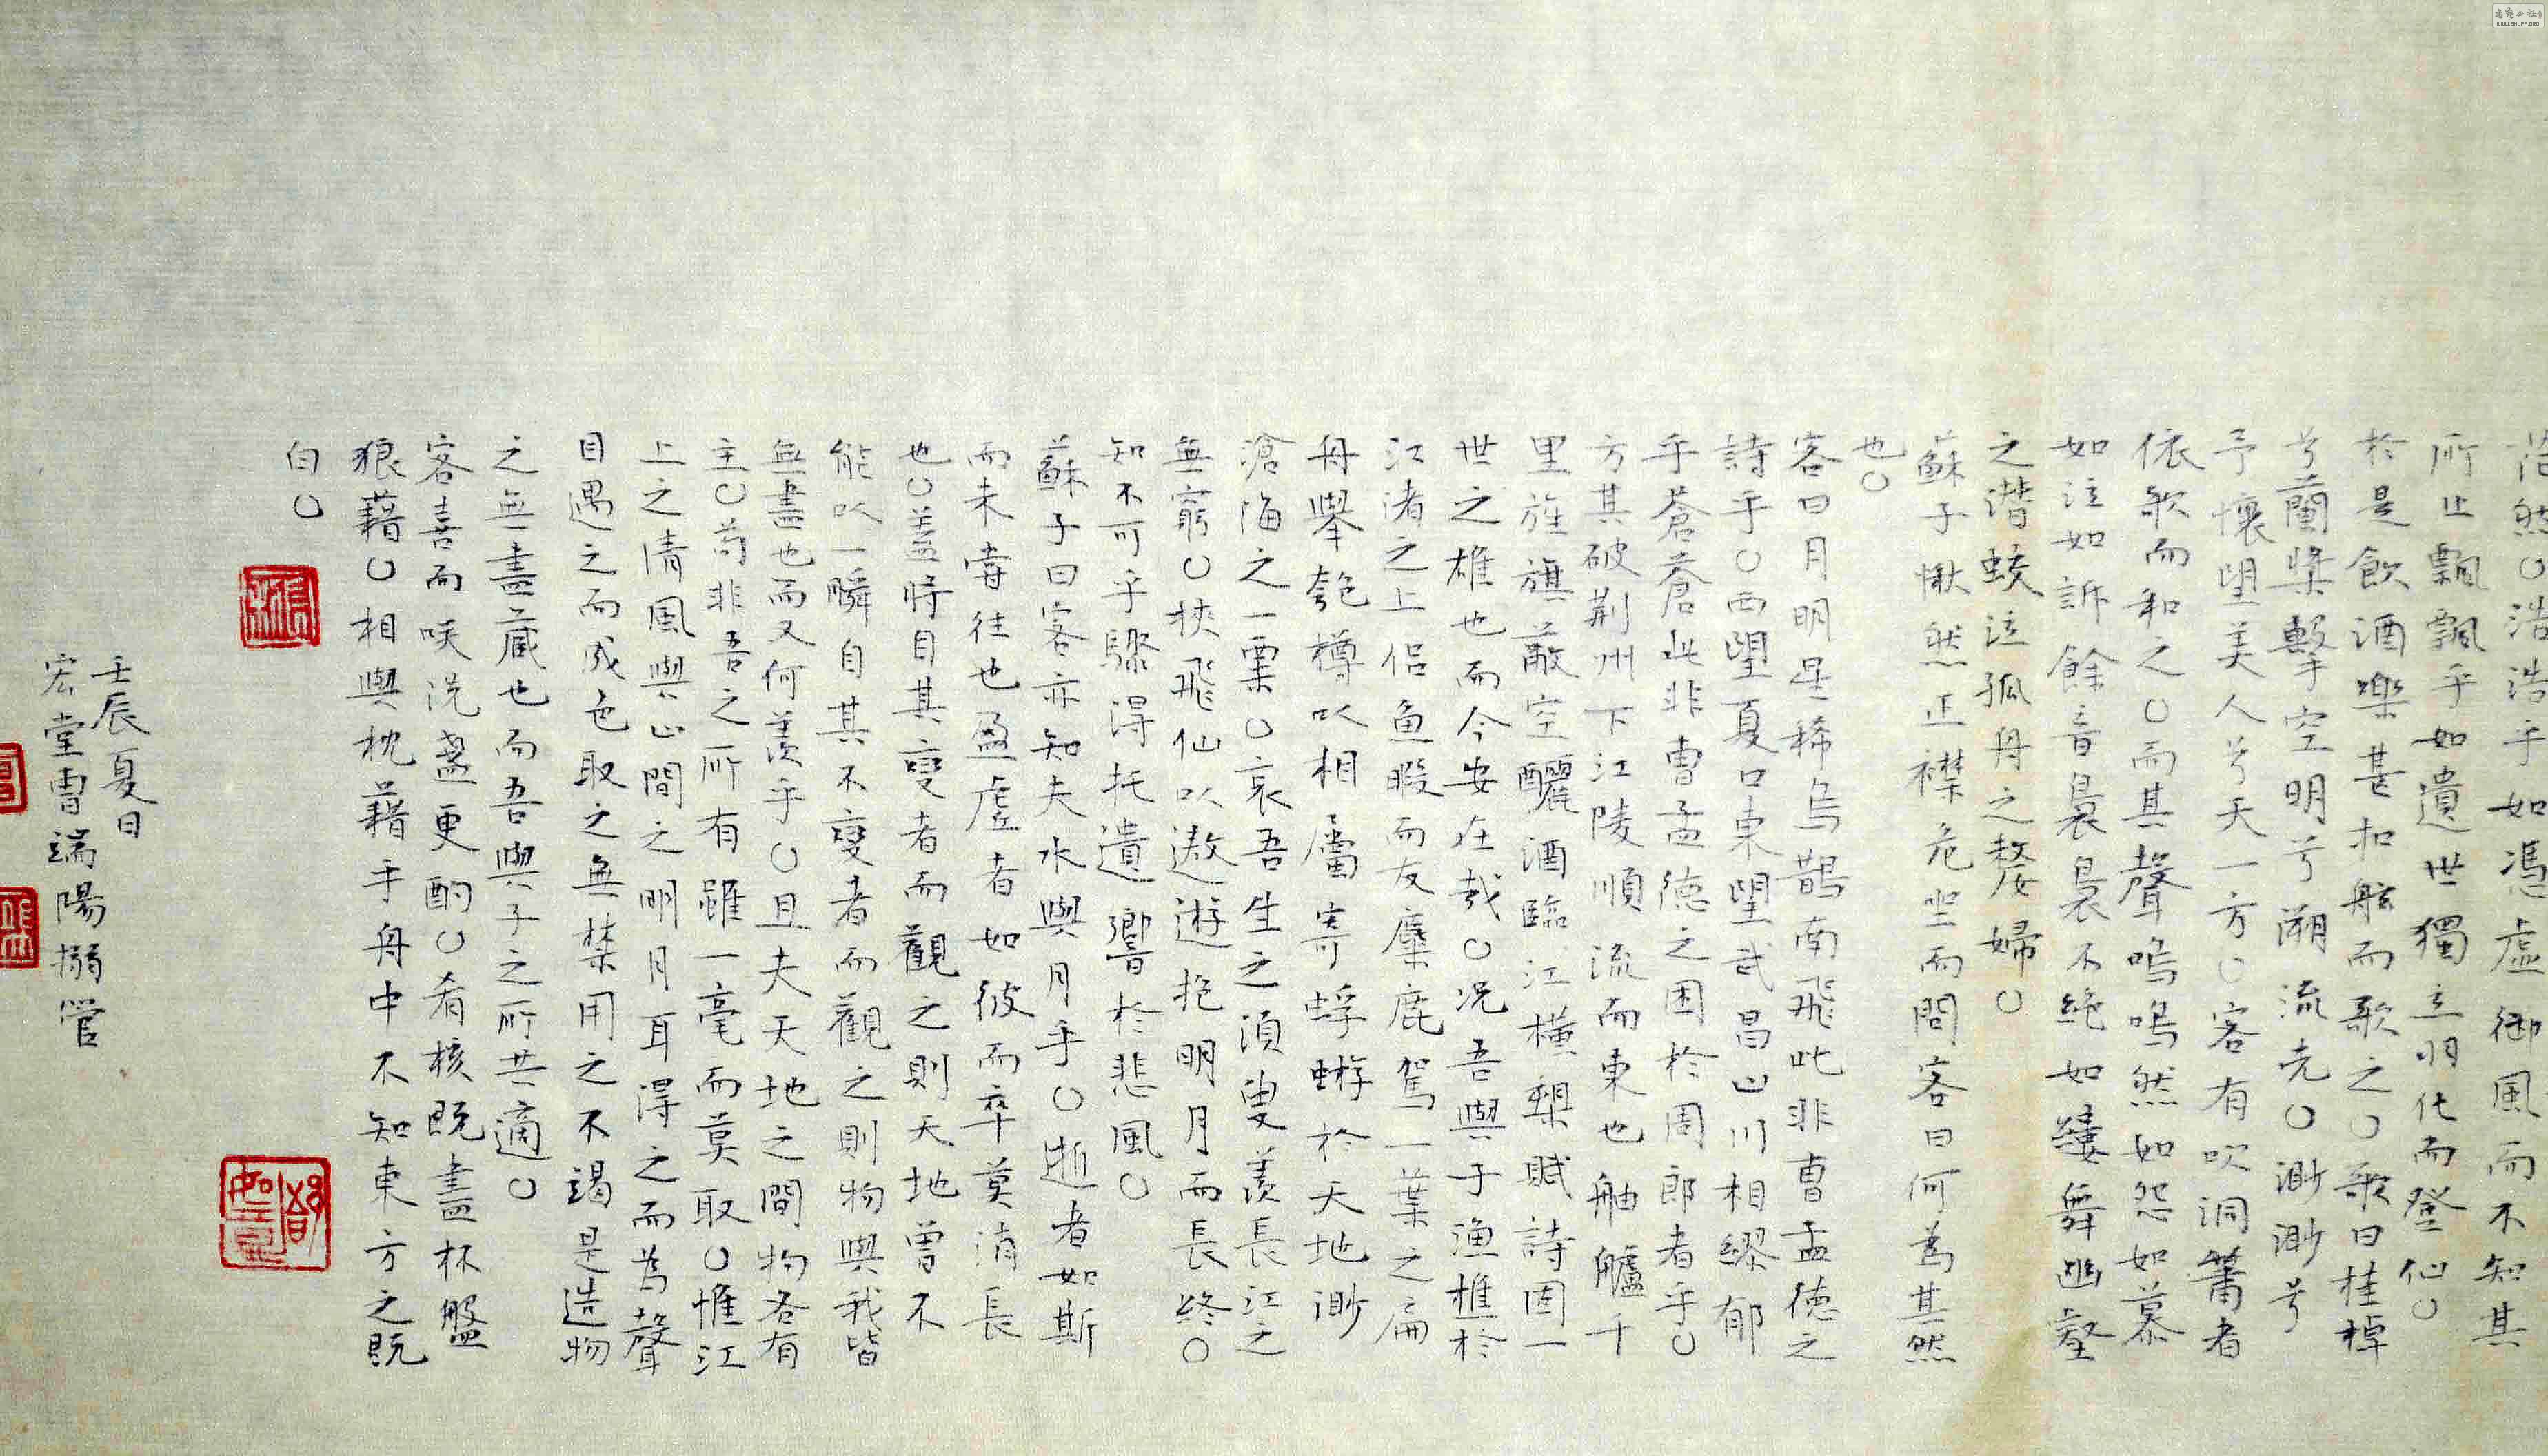 浩然○浩浩乎如馮虛御風而不知其
所止飄飄乎如遺世獨立羽化而登仙○
於是飲酒樂甚扣舷而歌之○歌曰桂棹
兮蘭槳擊空明兮溯流光○渺渺兮
予懷望美人兮天一方○客有吹洞簫者
依歌而和之○而其聲嗚嗚然如怨如慕
如泣如訴餘音裊裊不絕如縷舞幽壑
之潛蛟泣孤舟之嫠婦○
蘇子愀然正襟危坐而問客曰何為其然
也○
客曰月明星稀烏鵲南飛此非曹孟德之
詩乎○西望夏口東望武昌山川相繆郁
乎蒼蒼此非曹孟德之困於周郎者乎○
方其破荆州下江陵順流而東也舳艫千
里旌旗蔽空釃酒臨江橫槊賦詩固一
世之雄也而今安在哉○況吾與子漁樵於
江渚之上侶魚暇而友麋鹿駕一葉之扁
舟舉匏樽以相屬寄蜉蝣於天地渺
滄海之一粟○哀吾生之須臾羨長江之
無窮○挾飛仙以遨遊抱明月而長終○
知不可乎驟得托遺響於悲風○
蘇子曰客亦知夫水與月乎○逝者如斯
而未嘗往也盈虛者如彼而卒莫消長
也○蓋將自其變者而觀之則天地曾不
能以一瞬自其不變者而觀之則物與我皆
無盡也而又何羨乎○且夫天地之間物各有
主○苟非吾之所有雖一毫而莫取○惟江
上之清風與山間之明月耳得之而為聲
目遇之而成色取之無禁用之不竭是造物
之無盡藏也而吾與子之所共適○
客喜而咲洗盞更酌○肴核既盡杯盤
狼藉○相與枕藉乎舟中不知東方之既
白○
壬辰夏日
宏堂曹端陽搦管